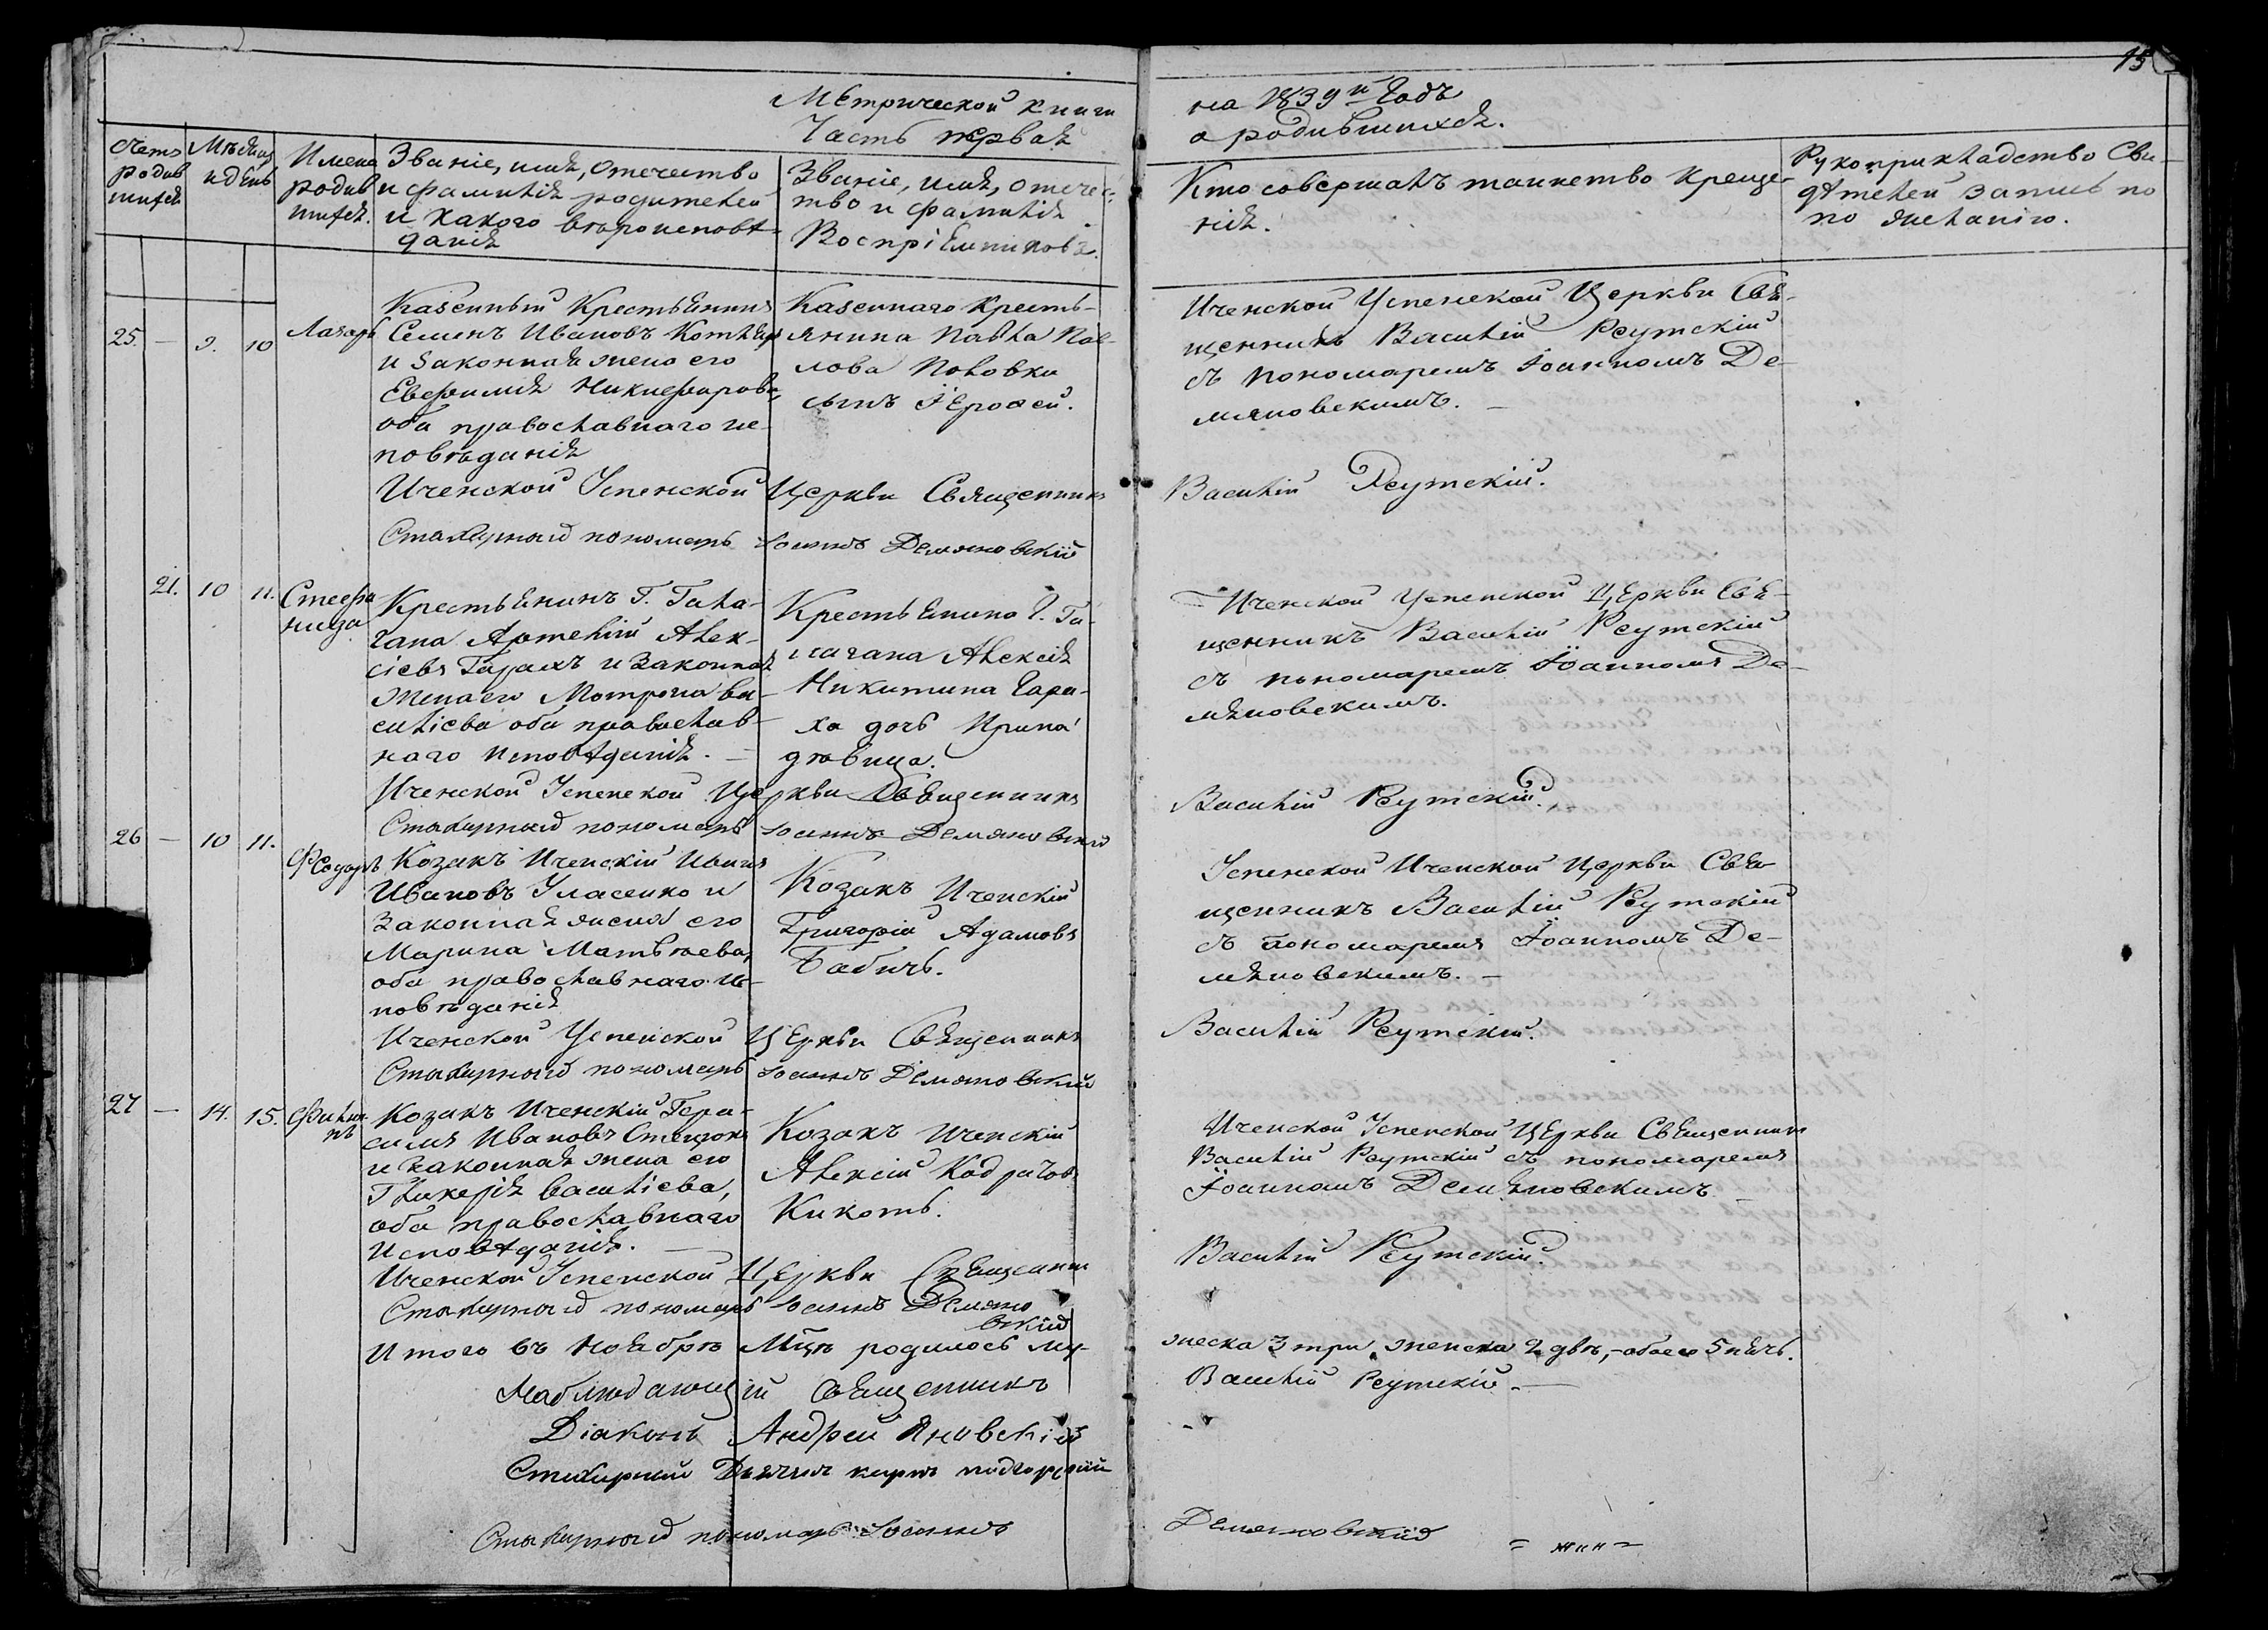 15
Метрической книги
Часть первая
на 1839й Годъ
о родившихся.
Счетъ родив шихся
Мѣсяцъ и день
Имена родив шихся.
Званіе, имя, отечество
и фамилія родителей
и какого вѣроисповѣ-
данія
Званіе, имя, отечес-
тво и фамилія
Воспріемниковъ.
Кто совершалъ таинство креще-
нія.
Рукоприкладство Сви-
дѣтелей записъ по
по желанію.
25. — 9. 10
Лазарь
Казенный Крестьянинъ
Семенъ Ивановъ Котляръ
и законная жена его
Евфимія Никифорова,
оба православнаго ис-
повѣданія
Казеннаго Кресть-
янина Павла Пав-
лова Половки
сынъ Іерофей.
Иченской Успенской Церкви Свя-
щенникъ Василій Реутскій
съ пономаремъ Іоанномъ Де-
мяновскимъ. —
Иченской Успенской Церкви Священникъ Василій Реутскій.
Стихарный пономарь Іоаннъ Демяновскій
21. 10 11.
Стефа
нида
Крестьянинъ Г. Гала-
гана Артемій Алек-
сіевъ Гарахъ и законная
жена его Мотрона Ва-
силіева оба православ-
наго исповѣданія. —
Крестьянина Г. Га-
лагана Алексія
Никитина Гара-
ха дочь Ирина
дѣвица.
Иченской Успенской Церкви Свя-
щенникъ Василій Реутскій
съ пономаремъ Іоанномъ Де-
мяновскимъ.
Иченской Успенской Церкви Священникъ Василій Реутскій.
Стихарный пономарь Іоаннъ Демяновскій
26 — 10 11.
Феодоръ
Козакъ Иченскій Иванъ
Ивановъ Уласенко и
законная жена его
Марина Матвѣева,
оба православнаго ис-
повѣданія
Козакъ Иченскій
Григорій Адамовъ
Бабичъ.
Успенской Иченской Церкви Свя-
щенникъ Василій Реутскій
съ пономаремъ Іоанномъ Де-
мяновскимъ. —
Иченской Успенской Церкви Священникъ Василій Реутскій.
Стихарный пономарь Іоаннъ Демяновскій
27 — 14. 15.
Филип
пъ
Козакъ Иченскій Гера-
симъ Ивановъ Стецюкъ
и законная жена его
Гликерія Василіева,
оба православнаго
исповѣданія. —
Козакъ Иченскій
Алексій Кодратовъ
Кикоть.
Иченской Успенской Церкви Священникъ
Василій Реутскій съ пономаремъ
Іоанномъ Демяновскимъ —
Иченской Успенской Церкви Священникъ Василій Реутскій.
Стихарный пономарь Іоаннъ Демяно
вскій
Итого въ Ноябрѣ Мцѣ родилось му-
жеска 3 три, женска 2 двѣ, — обоего 5 пять.
Наблюдающій Священникъ Василій Реутскій. —
Діаконъ Андрей Яновскій
Стихарный Дьячокъ подгорскій
Стихарный пономарь Іоаннъ Демяновскій